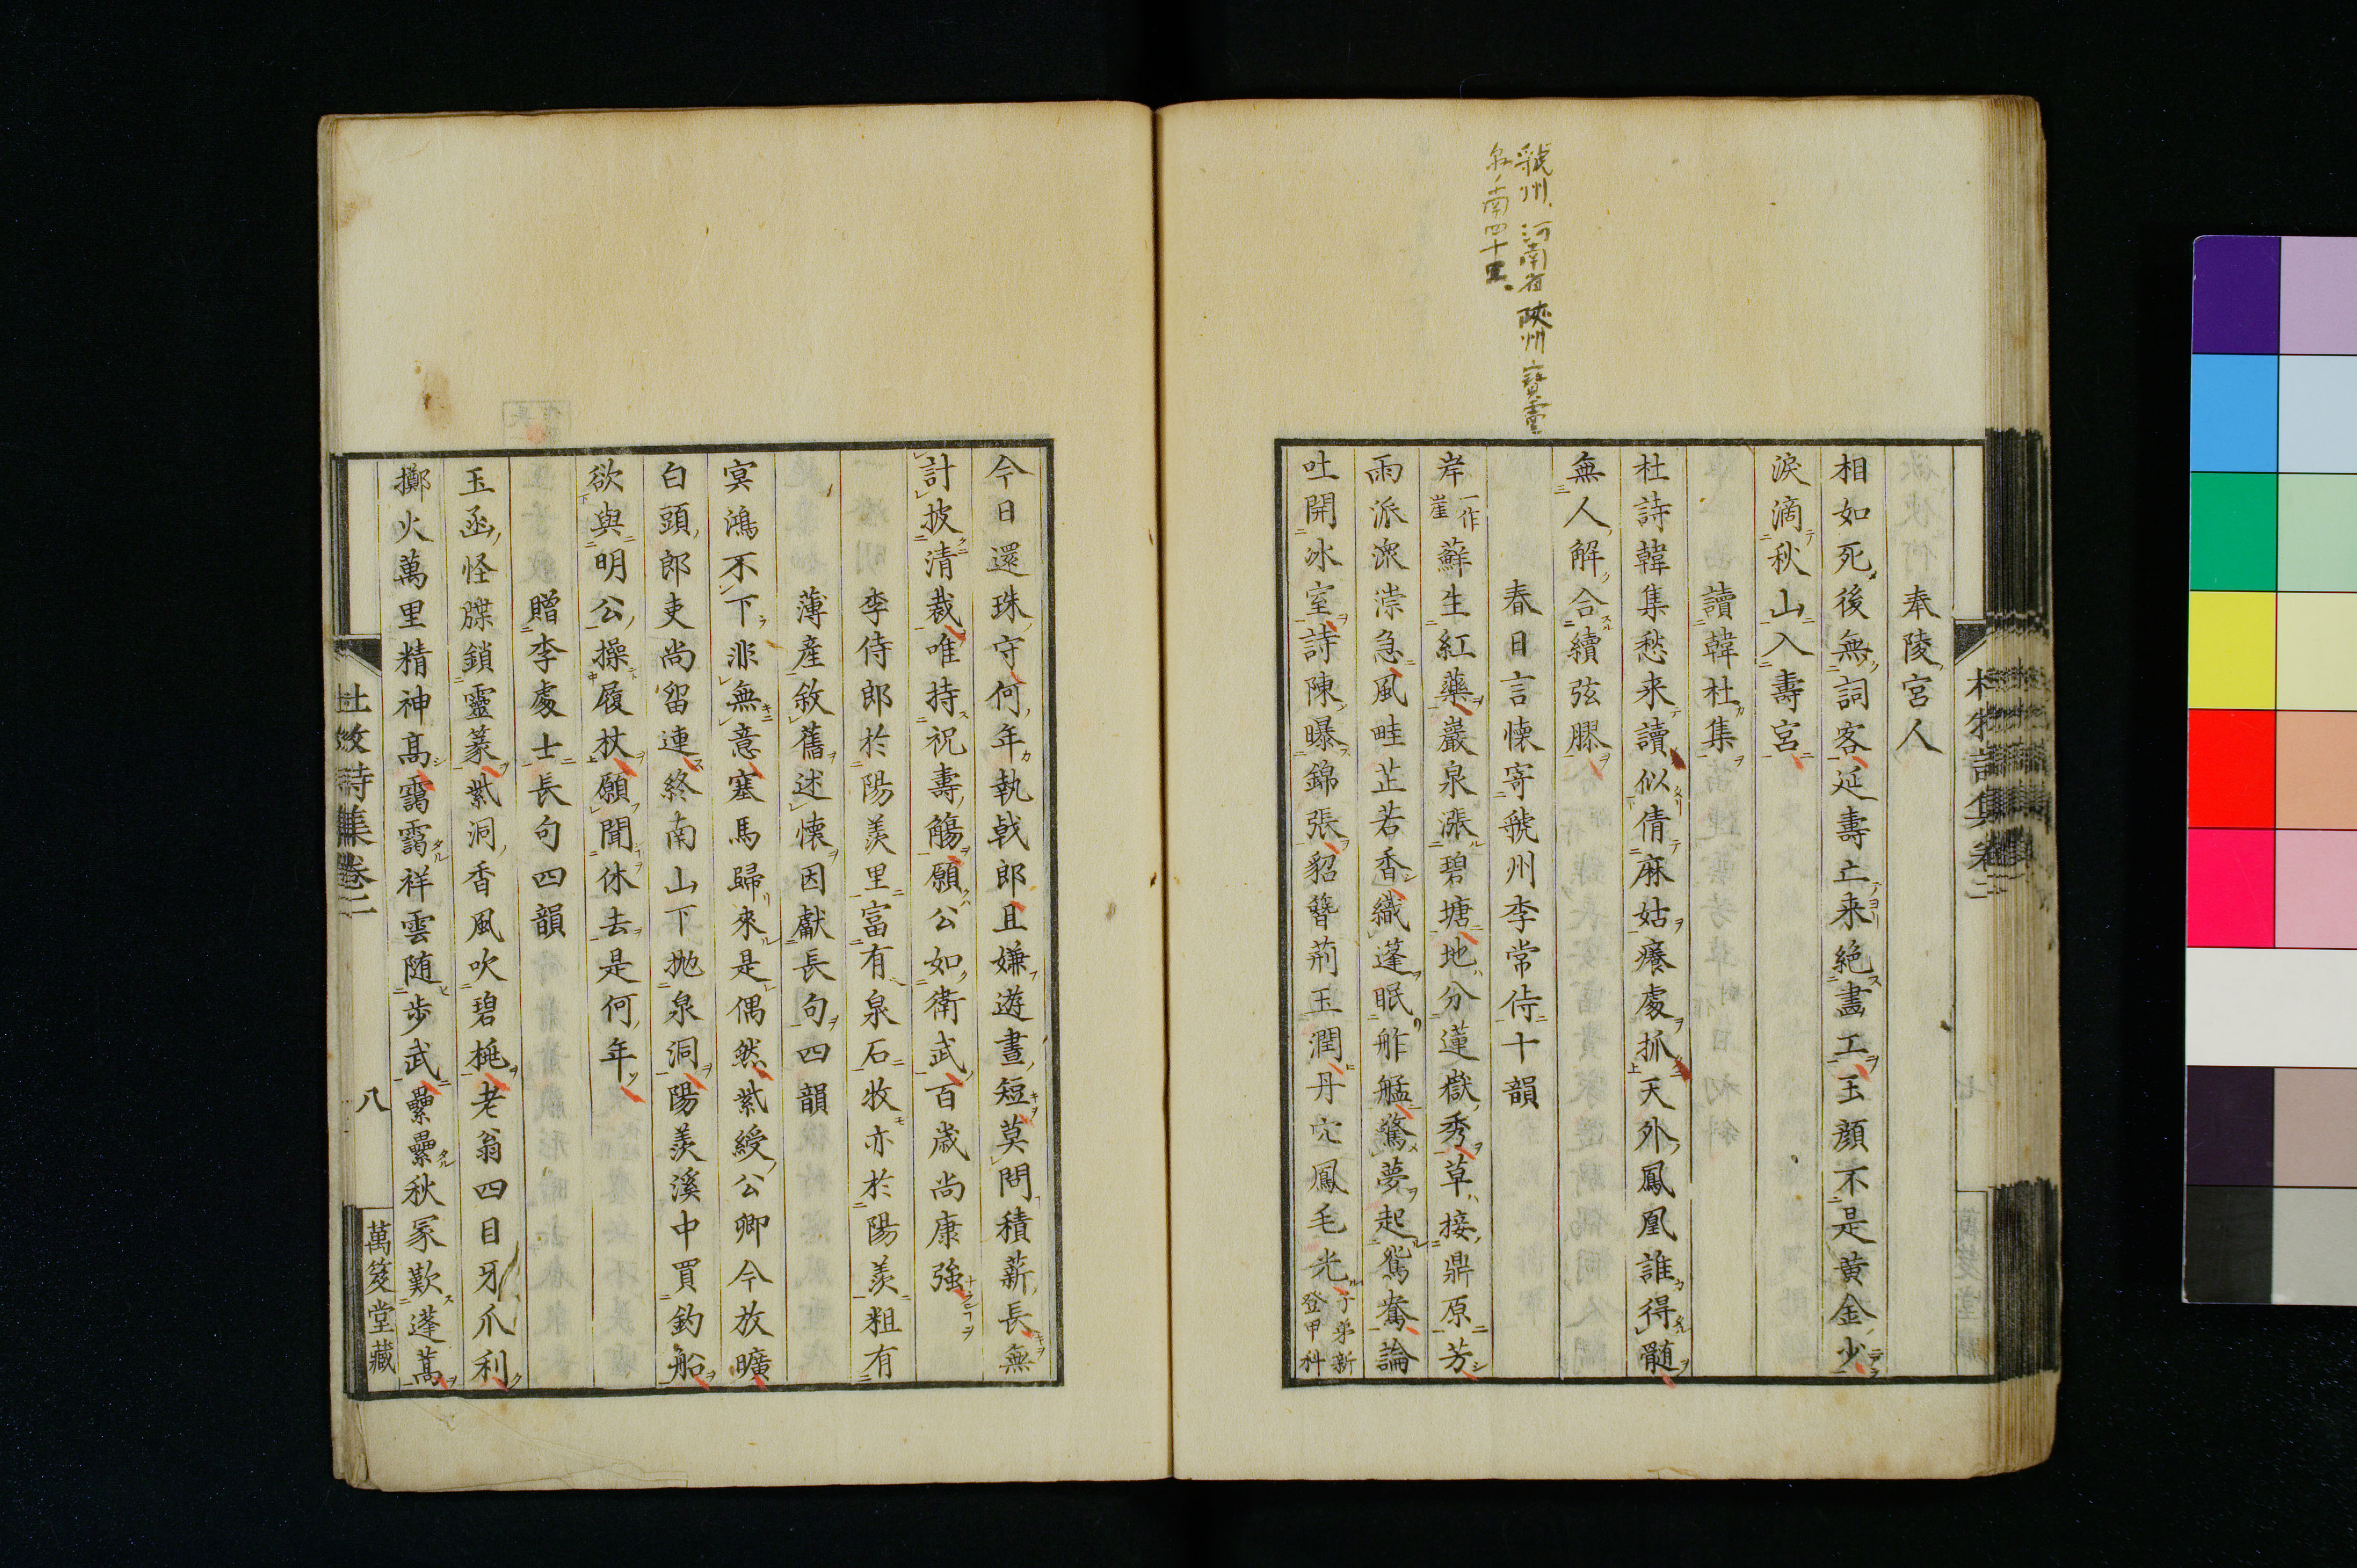 虢州、河南省陝州寶靈
縣ノ南四十里。
奉陵宮人
相如死後無詞客延壽亡来絶畫工玉顔不是黄金少
淚滴秋山入壽宮
讀韓杜集
杜詩韓集愁来讀似倩麻姑癢處抓天外鳳凰誰得髓
無人解合續弦膠
春日言懐寄虢州李常侍十韻
岸一作崖蘚生紅藥巖泉漲碧塘地分蓮嶽秀草接鼎原芳
雨派潨漴急風畦芷若香織蓬眠舴艋驚夢起鴛鴦論
吐開冰室詩陳曝錦張貂簪荊玉潤丹穴鳳毛光子弟新登甲科
今日還珠守何年執戟郎且嫌遊晝短莫問積薪長無
計披清裁唯持祝壽觴願公如衛武百歳尚康強
李侍郎於陽羡里富有泉石牧亦於陽羡粗有
薄産敘舊述懐因獻長句四韻
冥鴻不下非無意塞馬歸來是偶然紫綬公卿今放曠
白頭郎吏尚留連終南山下抛泉洞陽羡溪中買釣船
欲與明公操履杖願聞休去是何年
贈李處士長句四韻
玉函怪牒鎖靈篆紫洞香風吹碧桃老翁四目牙爪利
擲火萬里精神高靄靄祥雲随歩武纍纍秋冢歎蓬蒿
杜牧詩集卷二
八
萬笈堂藏